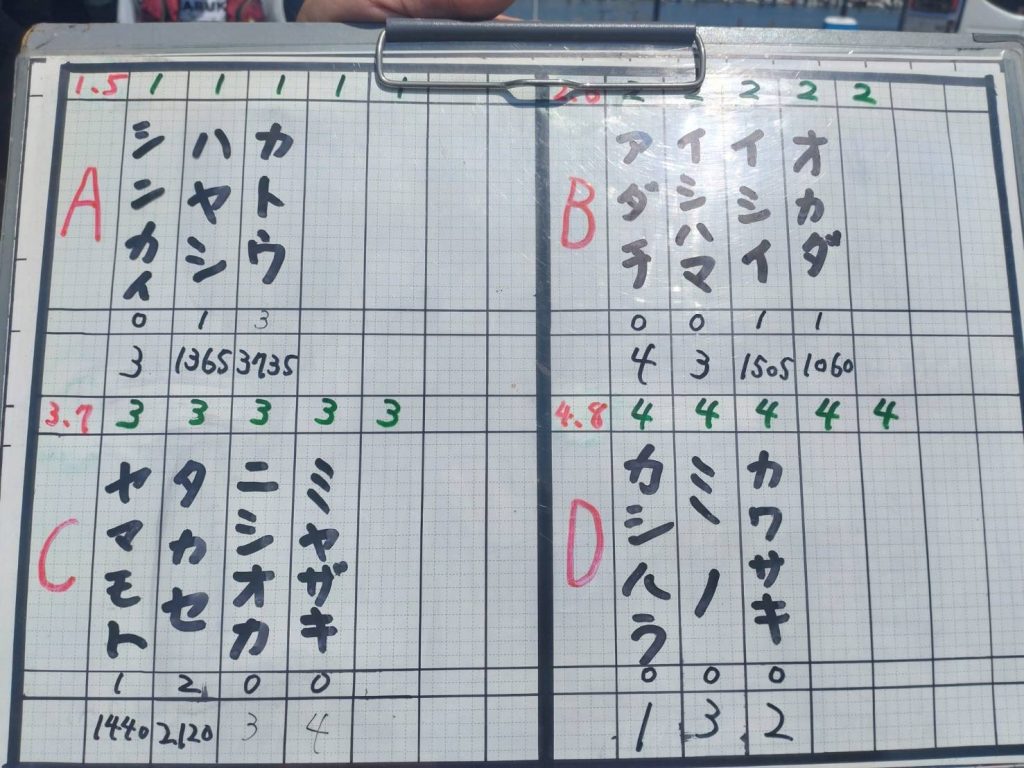 1.5 1 1 1 1 1
A
シンカイ ハヤシ カトウ
0 1 3
3 1365 3735
2.0 2 2 2 2 2
B
アダチ イシハマ イシイ オカダ
0 0 1 1
4 3 1505 1060
3.7 3 3 3 3 3
C
ヤマモト タカセ ニシオカ ミヤザキ
1 2 0 0
1440 2120 3 4
4.8 4 4 4 4 4
D
カシハラ ミノ カワサキ
0 0 0
1 3 2